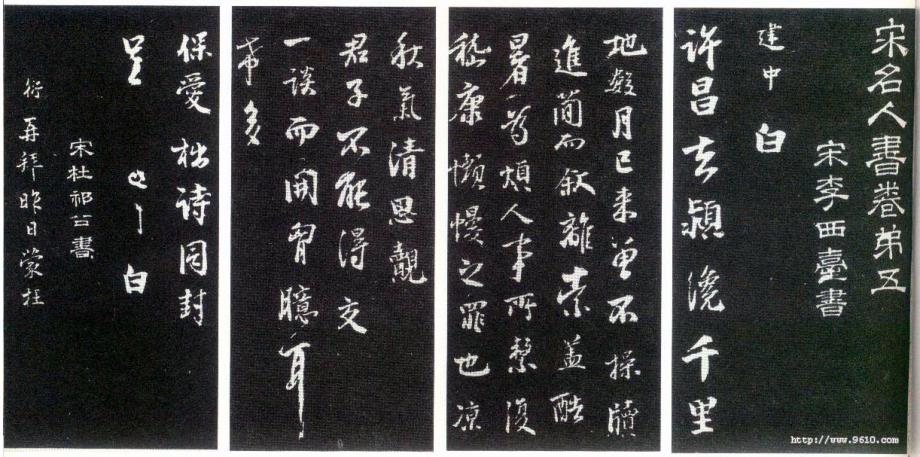 宋名人書卷第五
宋李西臺書
建中白
許昌去潁纔千里
地數月已来曾不操牘
進簡而敘離索蓋酷
暑為煩人事所繫復
嵇康懶慢之罪也凉
秋氣清思覿
君子不能得交
一談而開胷臆耳
希多
保愛 拙诗同封
呈 白
宋杜祁公書
衍再拜昨日蒙枉
http://www.9610.com